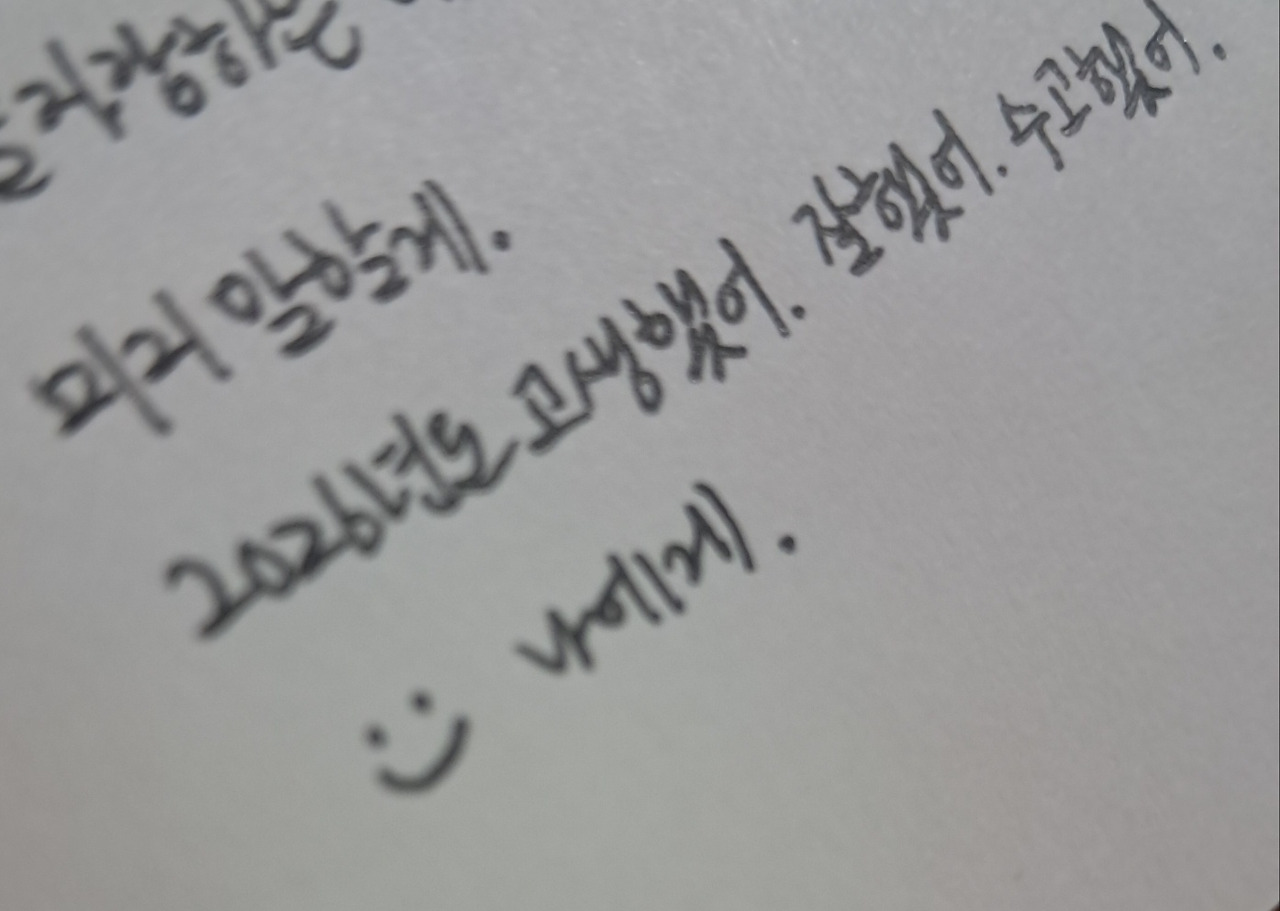 미리 말할게.
2026년도 고생했어. 잘했어. 수고했어.
나에게.